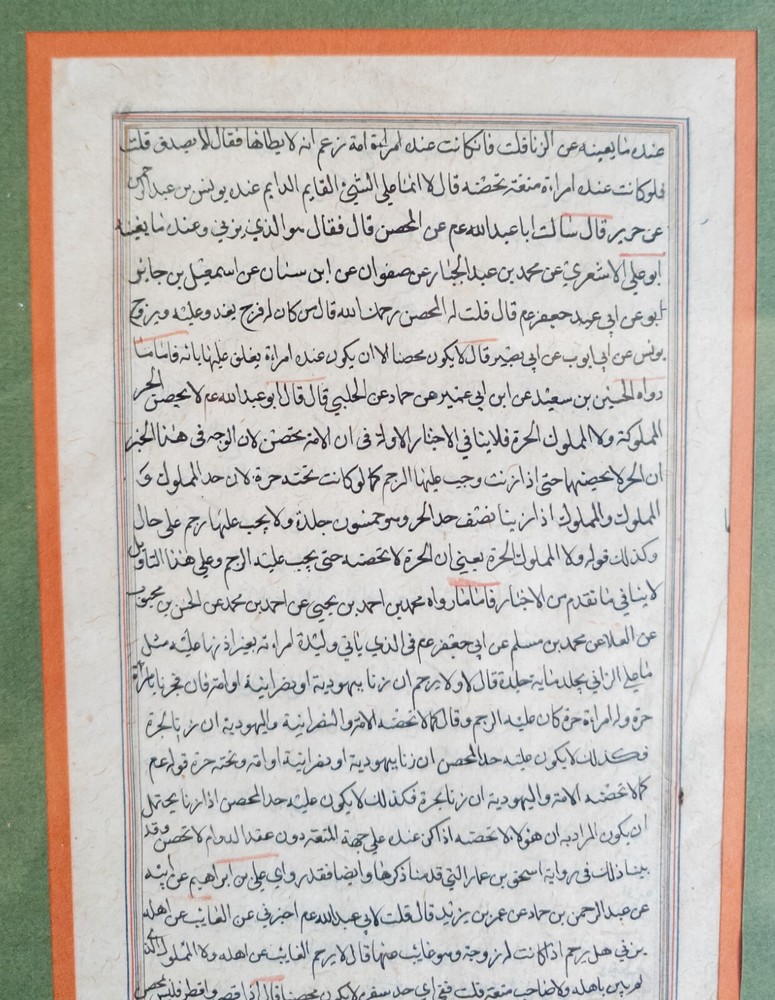 عنده ما يعينه عن الزنا قلت فان كانت عنده امراءة امة زعم انه لا يطاها فقال لا يصدق قلت
فلو كانت عنده امراءة متعة تحصنه قال لا انما علي الشيئ القايم الدايم عنده يونس بن عبدالرحمن
عن حريز قال سالت ابا عبدالله عم عن المحصن قال فقال هو الذي يزني وعنده ما يغنيه
ابو علي الاشعري عن محمد بن عبد الجبار عن صفوان عن ابن سنان عن اسمعيل بن جابر
عن ابي جعفر عم قال قلت له المحصن رحمك الله قال من كان له فرج يغدو عليه ويروح
يونس عن ابي ايوب عن ابي بصير قال لا يكون محصنا الا ان يكون عنده امراءة يغلق عليها بابه فاما ما
رواه الحسين بن سعيد عن ابن ابي عمير عن حماد عن الحلبي قال قال ابو عبدالله عم لا يحصن الحر
المملوكة ولا المملوك الحرة فلا ينافي الاخبار الاولة في ان الامة تحصن لان الوجه في هذا الخبر
ان الحر لا يحصنها حتى اذا زنت وجب عليها الرجم كما لو كانت تحته حرة لان حد المملوك و
المملوك والمملوك اذا زنيا نصف حد الحر وهو خمسون جلدة ولا يجب عليها رجم علي حال
وكذلك قوله ولا المملوك الحرة يعني ان الحرة لا تحصنه حتى يجب عليه الرجم وعلي هذا التاويل
لا ينافي ما تقدم من الاخبار فاما ما رواه محمد بن احمد بن يحيى عن احمد بن محمد عن الحسن بن محبوب
عن العلا عن محمد بن مسلم عن ابي جعفر عم في الذي ياتي وليدة امراءته بغير اذنها عليه مثل
ما علي الزاني يجلد مايه جلدة قال ولا يرجم ان زنا بيهودية او نصرانية او امة فان فجر بامراة
حرة وله امراءة حرة كان عليه الرجم وقال كما لا تحصنه الامة والنصرانية واليهودية ان زنا بالحرة
فكذلك لا يكون عليه حد المحصن ان زنا بيهودية او نصرانية او امة وتحته حرة قوله عم
كما لا تحصنه الامة واليهودية ان زنا بحرة فكذلك لا يكون عليه حد المحصن اذا زنا يحتمل
ان يكون المراد به ان هولاء لا تحصنه اذا كن عنده علي جهة المتعة دون عقد الدوام لا تحصن وقد
بينا ذلك في رواية اسحق بن عمار التي قدمنا ذكرها وايضا فقد روي علي بن ابراهيم عن ابيه
عن عبد الرحمن بن حماد عن عمر بن يزيد قال قلت لابي عبدالله عم اخبرني عن الغايب عن اهله
يزني هل يرجم اذا كانت له زوجة وهو غايب عنها قال لا يرجم الغايب عن اهله ولا المملوك الذي
لم يبن باهله ولا صاحب متعة قلت ففي اي حد سفره لا يكون محصنا قال اذا قصر وافطر فليس بمحصن